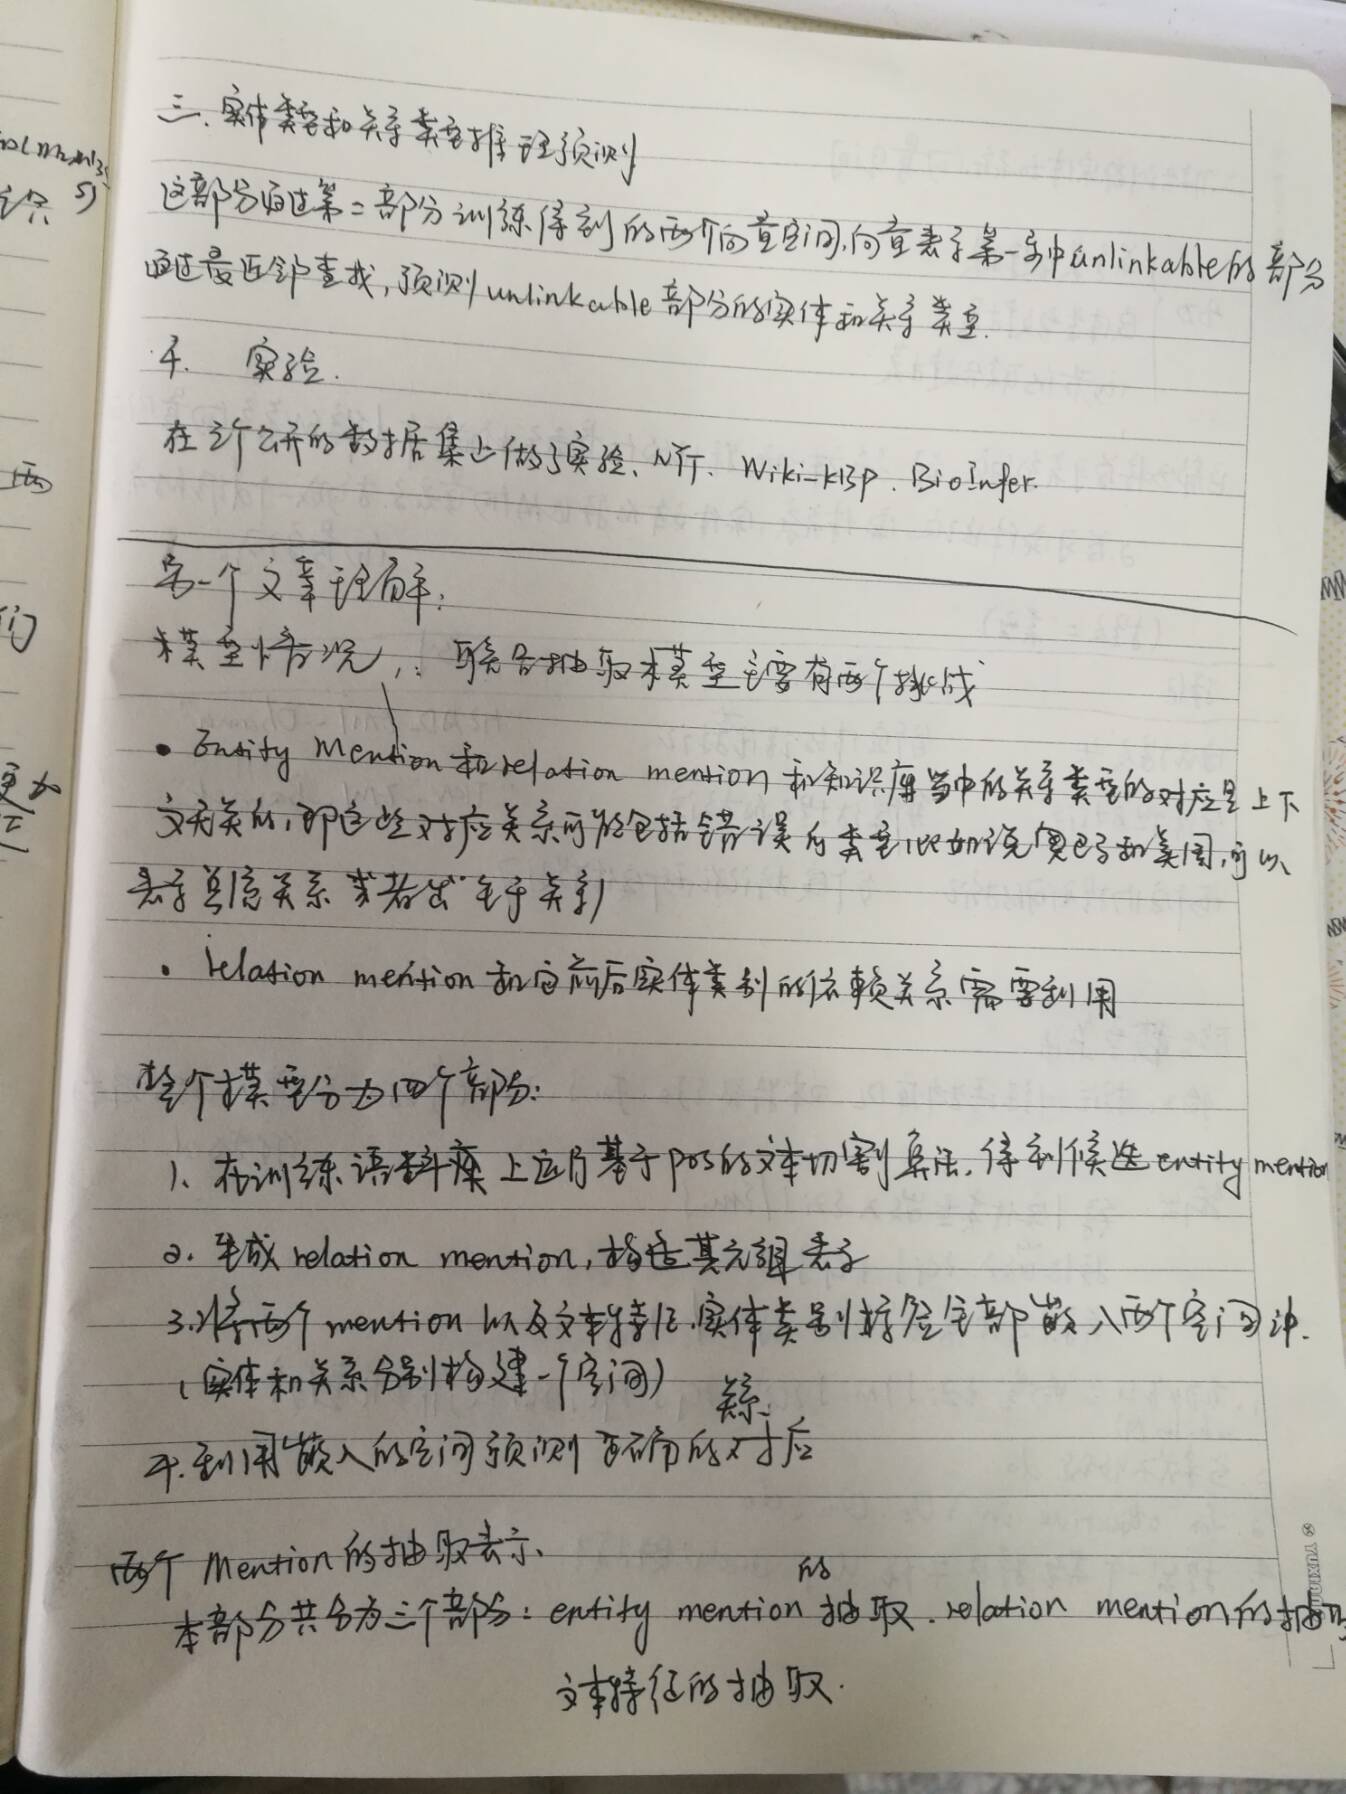 三. 实体类型和关系类型推理预测
这部分通过第二部分训练得到的两个向量空间,向量表示第一步中unlinkable的部分
通过最近邻查找,预测unlinkable部分的实体和关系类型.
4. 实验.
在三个公开的数据集上做了实验、NYT、Wiki-KBP. BioInfer.
另一个文章理解:
模型情况: 联合抽取模型主要有两个挑战
• Entity Mention和relation mention和知识库当中的关系类型的对应是上下
文无关的,即这些对应关系可能包括错误的类型,比如说奥巴马和美国,可以
表示总统关系 或者出生于关系
• relation mention和它前后实体类别的依赖关系需要利用
整个模型分为四个部分:
1、在训练语料库上运行基于pos的文本切割算法,得到候选entity mention
2. 生成relation mention,构造其元组表示
3.将两个mention以及文本特征.实体类别标签全部嵌入两个空间中.
(实体和关系分别构建一个空间)
关系
4.利用嵌入的空间预测正确的对应
两个Mention的抽取表示、
的
本部分共分为三个部分: entity mention 抽取. relation mention的抽取
文本特征的抽取.
YUXIAN